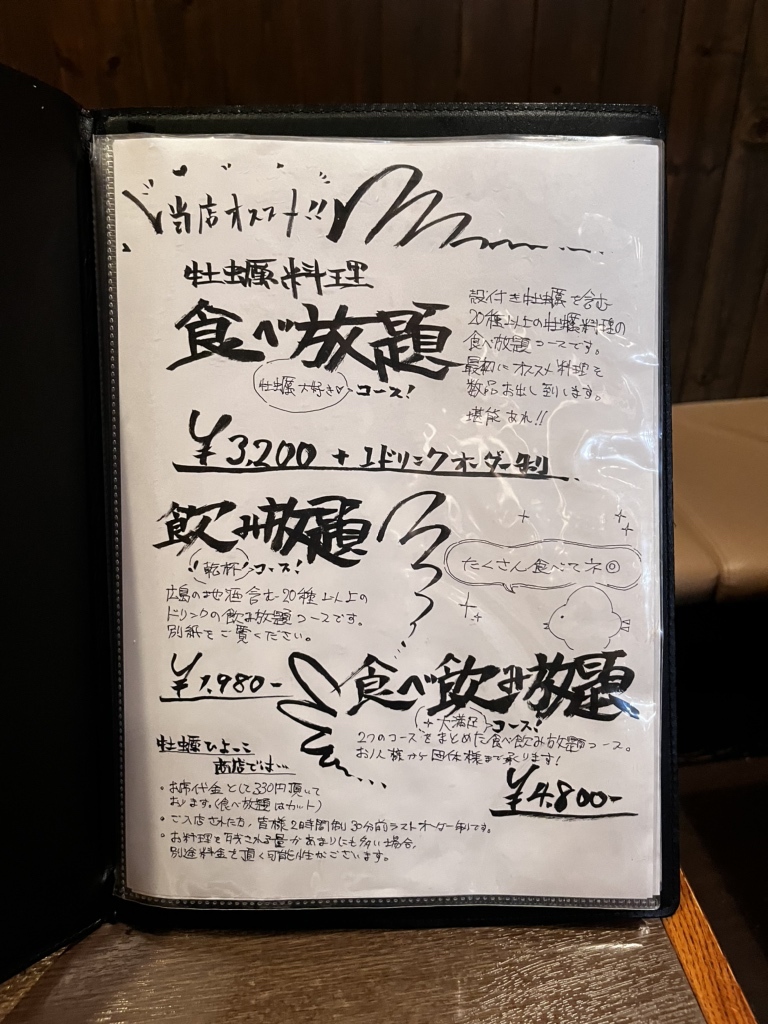 当店オススメ!!
牡蠣料理
食べ放題
牡蠣大好き♡コース!
殻付き牡蠣を含む
20種以上の牡蠣料理の
食べ放題コースです。
最初にオススメ料理を
数品お出し致します。
堪能あれ!!
¥3,200 + 1ドリンクオーダー制
飲み放題
!乾杯!コース!
広島の地酒含む20種以上の
ドリンクの飲み放題コースです。
別紙をご覧ください。
¥1,980-
たくさん食べてネ◎
食べ飲み放題
+大満足 コース!
2つのコースをまとめた食べ飲み放題コース。
お1人様から団体様まで承ります!
¥4,800-
牡蠣ひよっこ
商店では…
・お席代金として330円頂いて
おります。(食べ放題はカット)
・ご入店された方、皆様2時間制30分前ラストオーダー制です。
・お料理を残される量があまりにも多い場合、
別途料金を頂く可能性がございます。